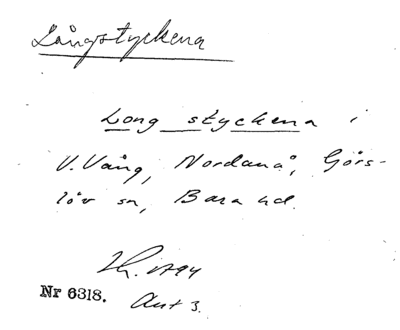 Långstyckena
Long styckena i
V. Vång, Nordanå, Görs-
löv sn, Bara hd.
Nr 6318.